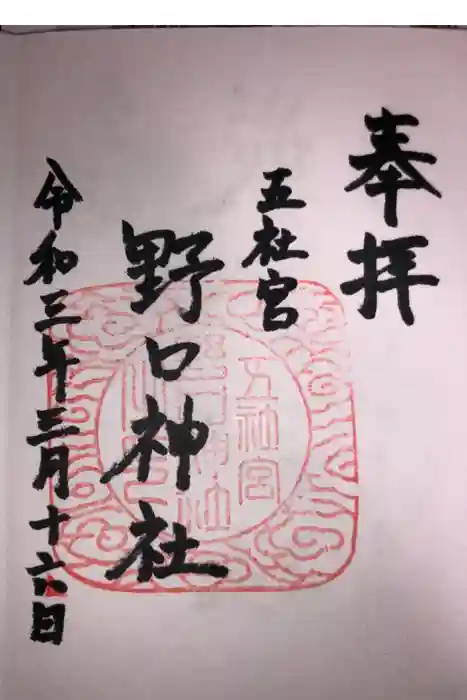 奉拝
五社宮
野口神社
令和三年三月十六日
五社宮
野口神社